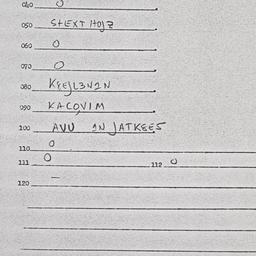 040 0
050 StEXT HOJ2
060 0
070 0
080
090 KACOVIM
100 AVU IN JATKEES
110 0
111 0 112 0
120 —